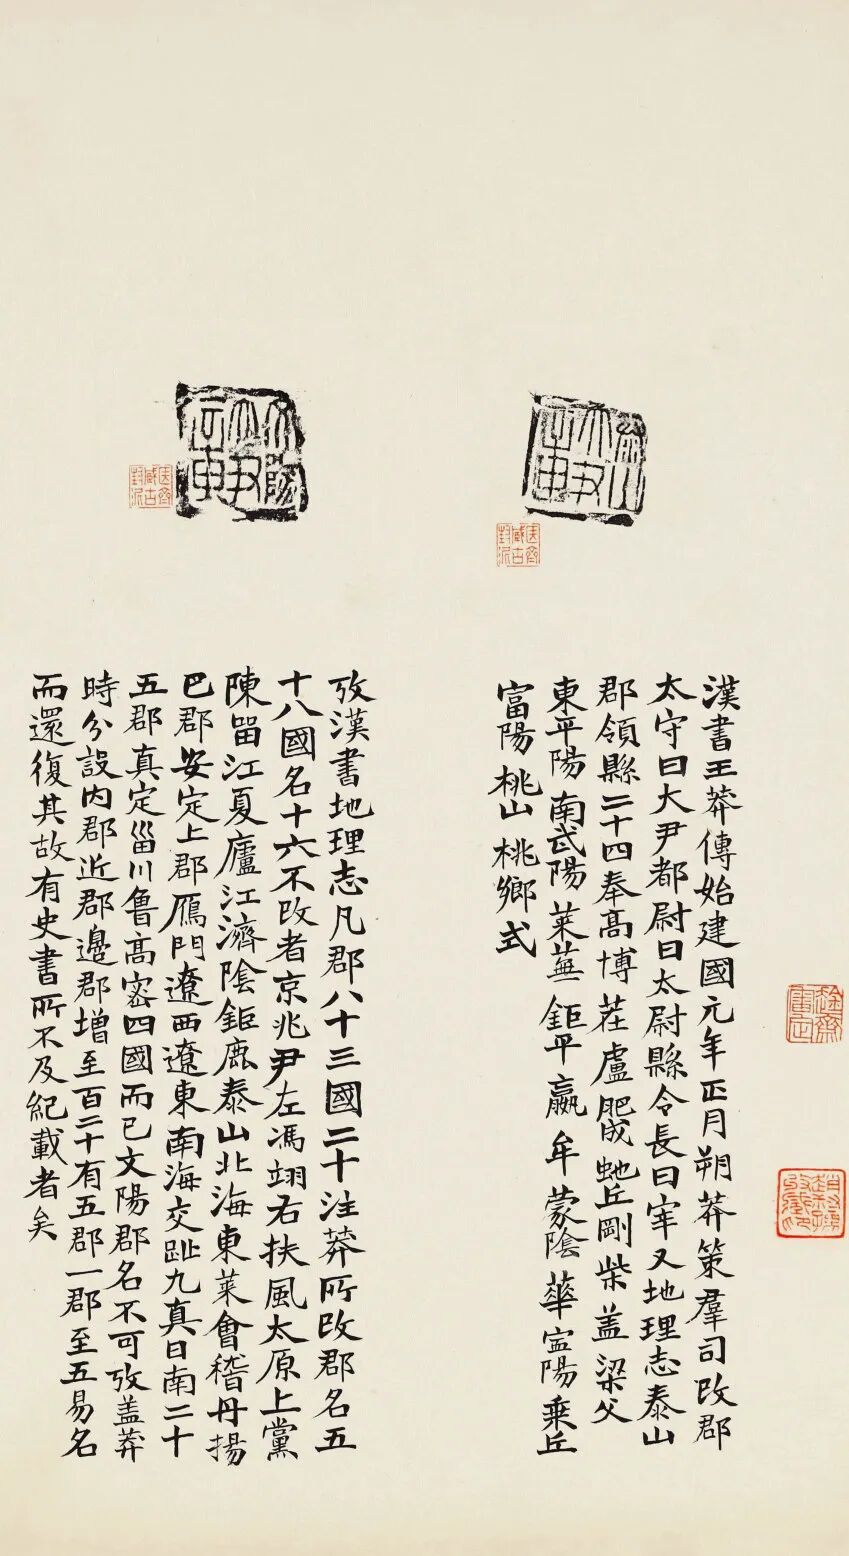 漢書王莽傳始建國元年正月朔莽策羣司改郡
太守曰大尹都尉曰太尉縣令長曰宰又地理志泰山
郡領縣二十四奉高博茬盧肥成虵丘剛柴盖梁父
東平陽南武陽萊蕪鉅平嬴牟蒙陰華寍陽乘丘
富陽桃山桃鄉式
泰山
大尹
藏古
封泥
攷漢書地理志凡郡八十三國二十注莽所改郡名五
十八國名十六不改者京兆尹左馮翊右扶風太原上黨
陳畱江夏廬江濟陰鉅鹿泰山北海東萊會稽丹揚
巴郡安定上郡鴈門遼西遼東南海交趾九真日南二十
五郡真定甾川魯高密四國而已文陽郡名不可攷盖莽
時分設内郡近郡邊郡增至百二十有五郡一郡至五易名
而還復其故有史書所不及紀載者矣
文陽
大尹
藏古
封泥